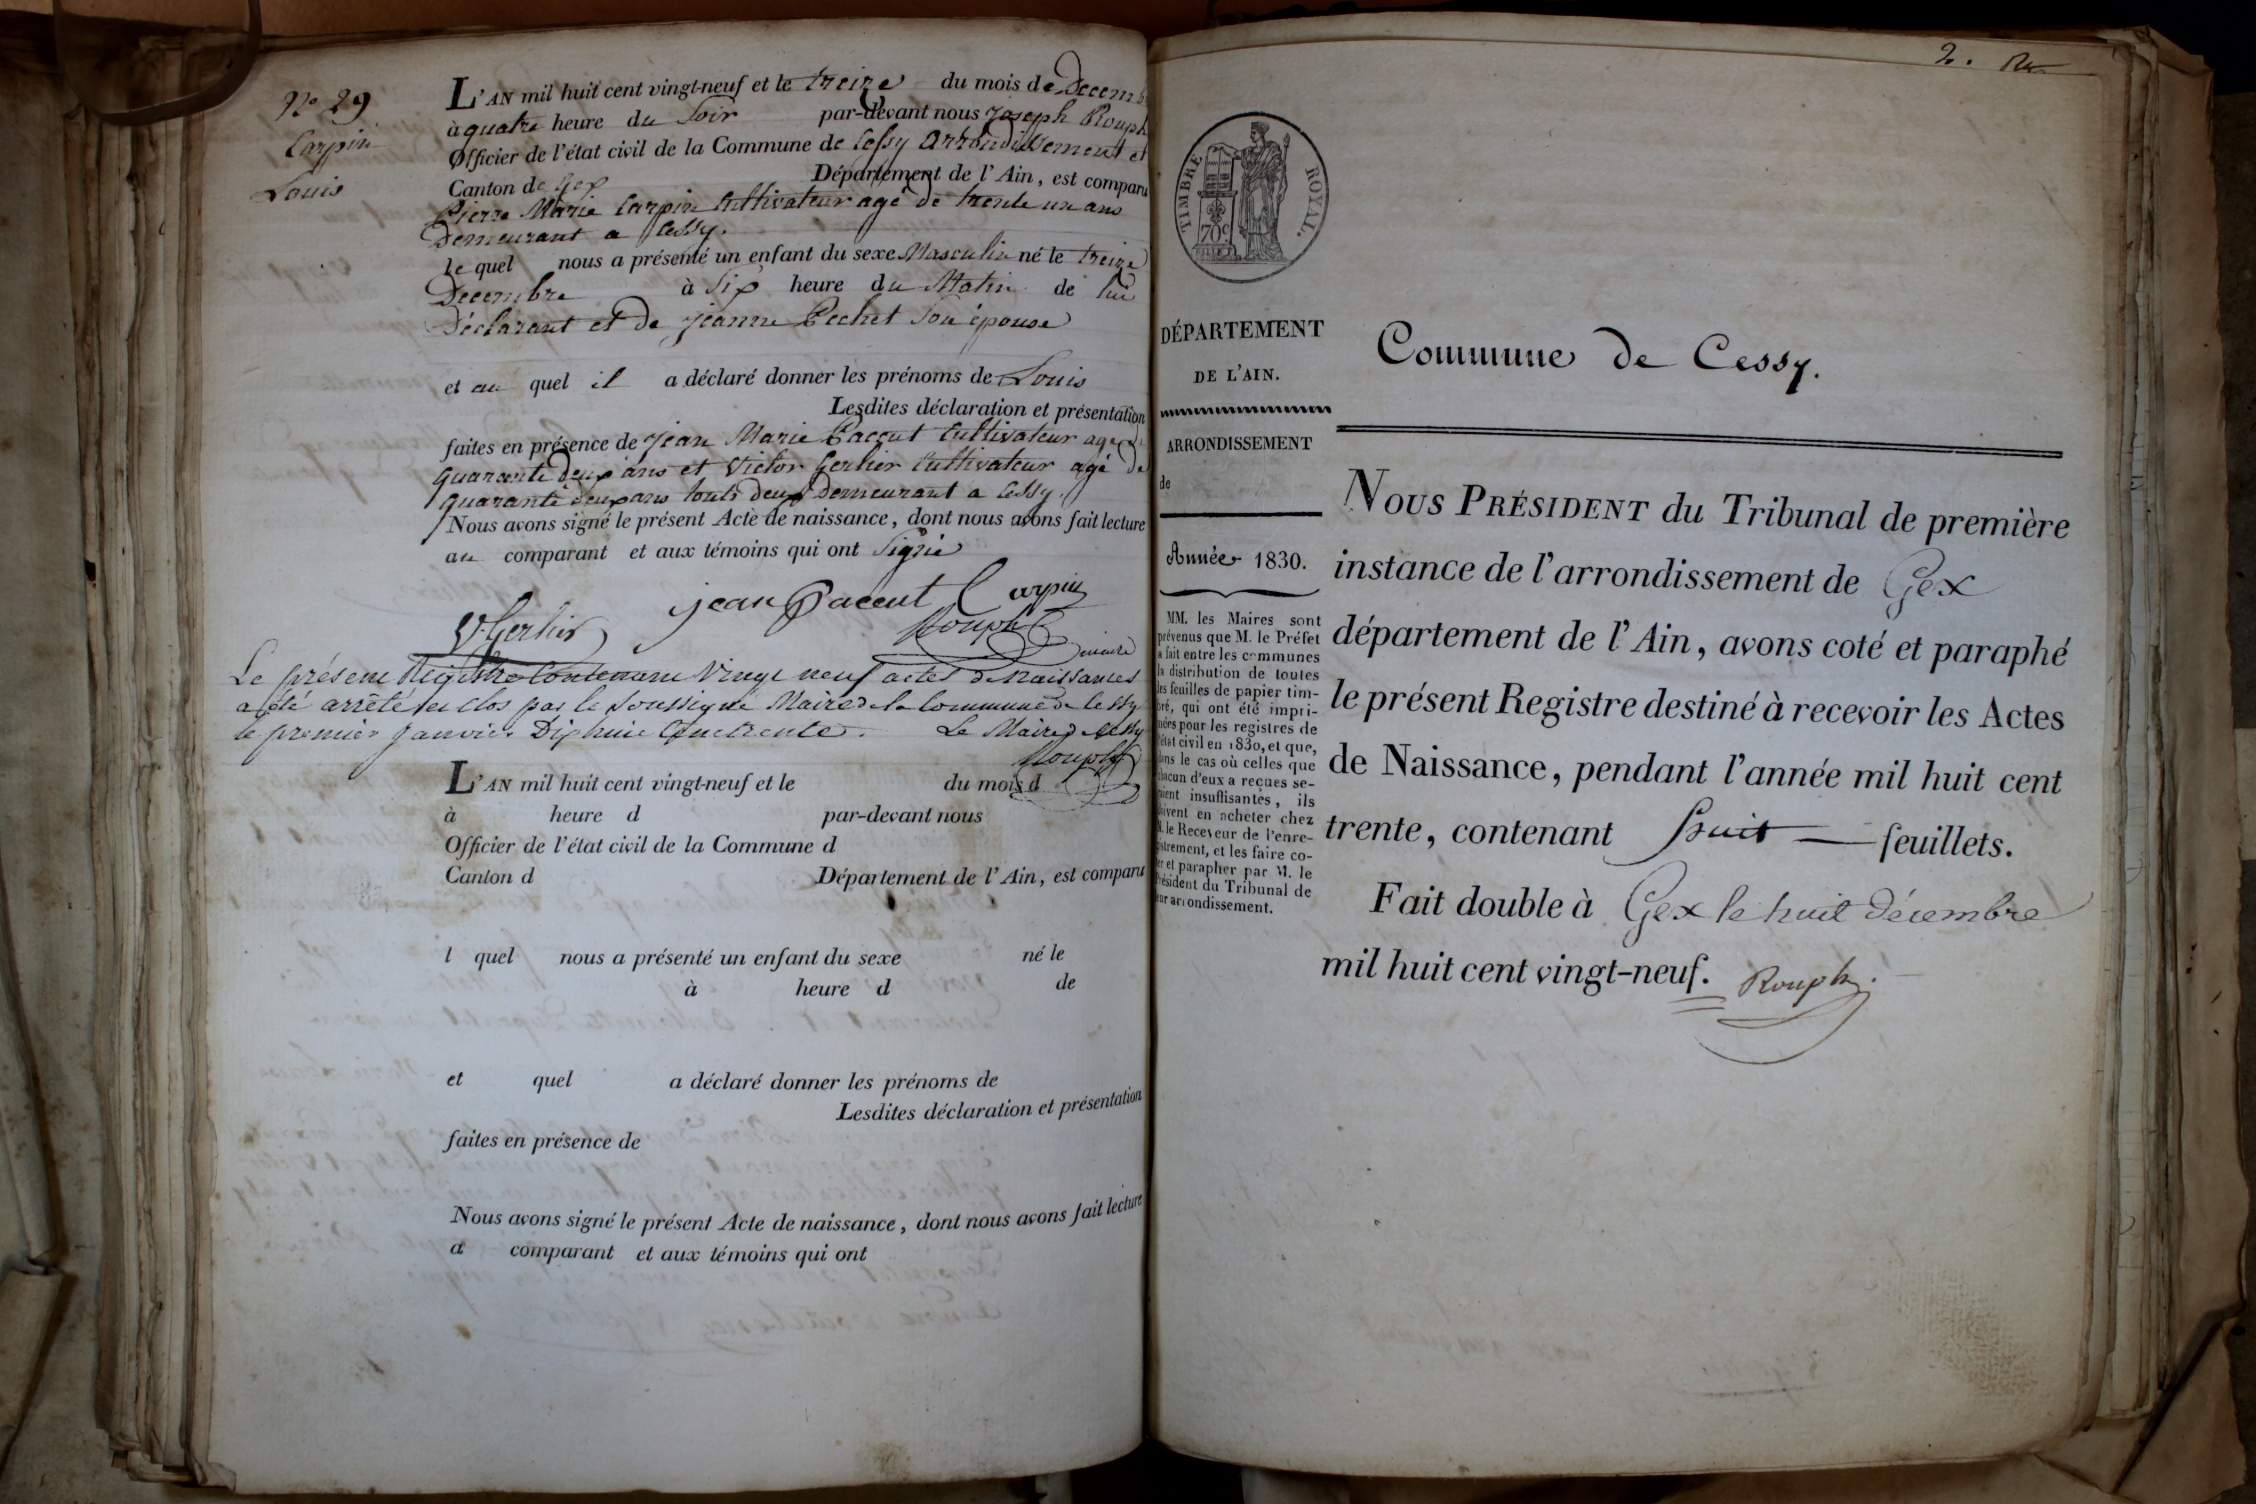 N.o 29
Carpin
Louis
L'AN mil huit cent vingt-neuf et le treize du mois de Decemb
à quatre heure du Soir par-devant nous Joseph Rouph
Officier de l'état civil de la Commune de Cessy Arrondissement et
Canton de Gex Département de l'Ain, est comparu
Pierre Marie Carpin Cultivateur agé de trente un ans
Demeurant a Cessy.
le quel nous a présenté un enfant du sexe Masculin né le treize
Decembre à Six heure du Matin de lui
Déclarant et de Jeanne Pechet Son épouse
et au quel il a déclaré donner les prénoms de Louis
Lesdites déclaration et présentation
faites en présence de Jean Marie Paccut Cultivateur agé de
quarante deux ans et Victor Gerlier Cultivateur agé de
quarante deux ans touts deux Demeurant a Cessy.
Nous avons signé le présent Acte de naissance, dont nous avons fait lecture
au comparant et aux témoins qui ont Signé
jean Paccut Carpin
V. Gerlier Rouph
maire
Le présent Registre Contenant Vingt neuf actes de Naissances
a été arrêté et clos par le soussigné Maire de la Commune de Cessy
le premier Janvier Dix huit Cent trente. Le Maire de Cessy
Rouph
L'AN mil huit cent vingt-neuf et le du mois d
à heure d par-devant nous
Officier de l'état civil de la Commune d
Canton d Département de l'Ain, est comparu
l quel nous a présenté un enfant du sexe né le
à heure d de
et quel a déclaré donner les prénoms de
Lesdites déclaration et présentation
faites en présence de
Nous avons signé le présent Acte de naissance, dont nous avons fait lecture
a comparant et aux témoins qui ont
2.
TIMBRE ROYAL.
70c
DÉPARTEMENT
DE L'AIN.
ARRONDISSEMENT
de
Année 1830.
MM. les Maires sont
prévenus que M. le Préfet
a fait entre les communes
la distribution de toutes
les feuilles de papier tim-
bré, qui ont été impri-
mées pour les registres de
l'état civil en 1830, et que,
dans le cas où celles que
chacun d'eux a reçues se-
raient insuffisantes, ils
doivent en acheter chez
M. le Receveur de l'enre-
gistrement, et les faire co-
ter et parapher par M. le
Président du Tribunal de
leur arrondissement.
Commune de Cessy.
NOUS PRÉSIDENT du Tribunal de première
instance de l'arrondissement de Gex
département de l'Ain, avons coté et paraphé
le présent Registre destiné à recevoir les Actes
de Naissance, pendant l'année mil huit cent
trente, contenant huit feuillets.
Fait double à Gex le huit décembre
mil huit cent vingt-neuf. Rouph.